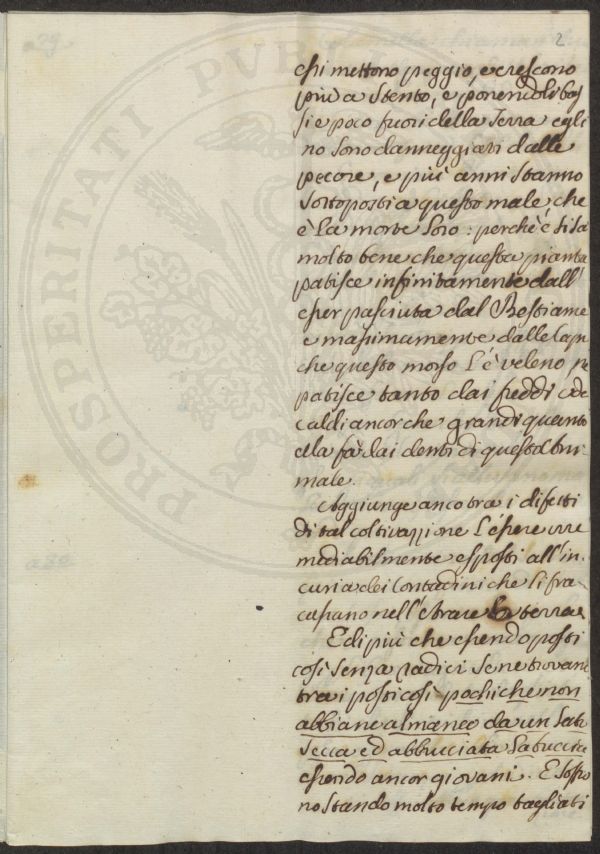 2
chi mettono peggio, e crescono
più a stento, e ponendoli bas
si e poco fuori della Terra egli
no sono danneggiati dalle
pecore, e più anni stanno
sottoposti a questo male, che
è la morte loro: perchè è si sa
molto bene che questa pianta
patisce infinitamente dall'
esser pasciuta dal Bestiame
e massimamente dalle Cap
che questo morso l'è veleno, ne
patisce tanto dai freddi e da
caldi ancor che grandi quanto
ella fà dai denti di questo
male.
Aggiunge anco tra i difetti
di tal coltivazzione l'essere irre
mediabilmente esposti all'in-
curia dei Contadini che li fra
cassano nell'Arare la terra
E di più che essendo posti
così senza radici se ne trovano
tra i posti così pochi che non
abbiano almanco da un lato
secca ed abbruciata la buccia
essendo ancor giovani. E soffro
no stando molto tempo tagliati
PROSPERITATI PUBL